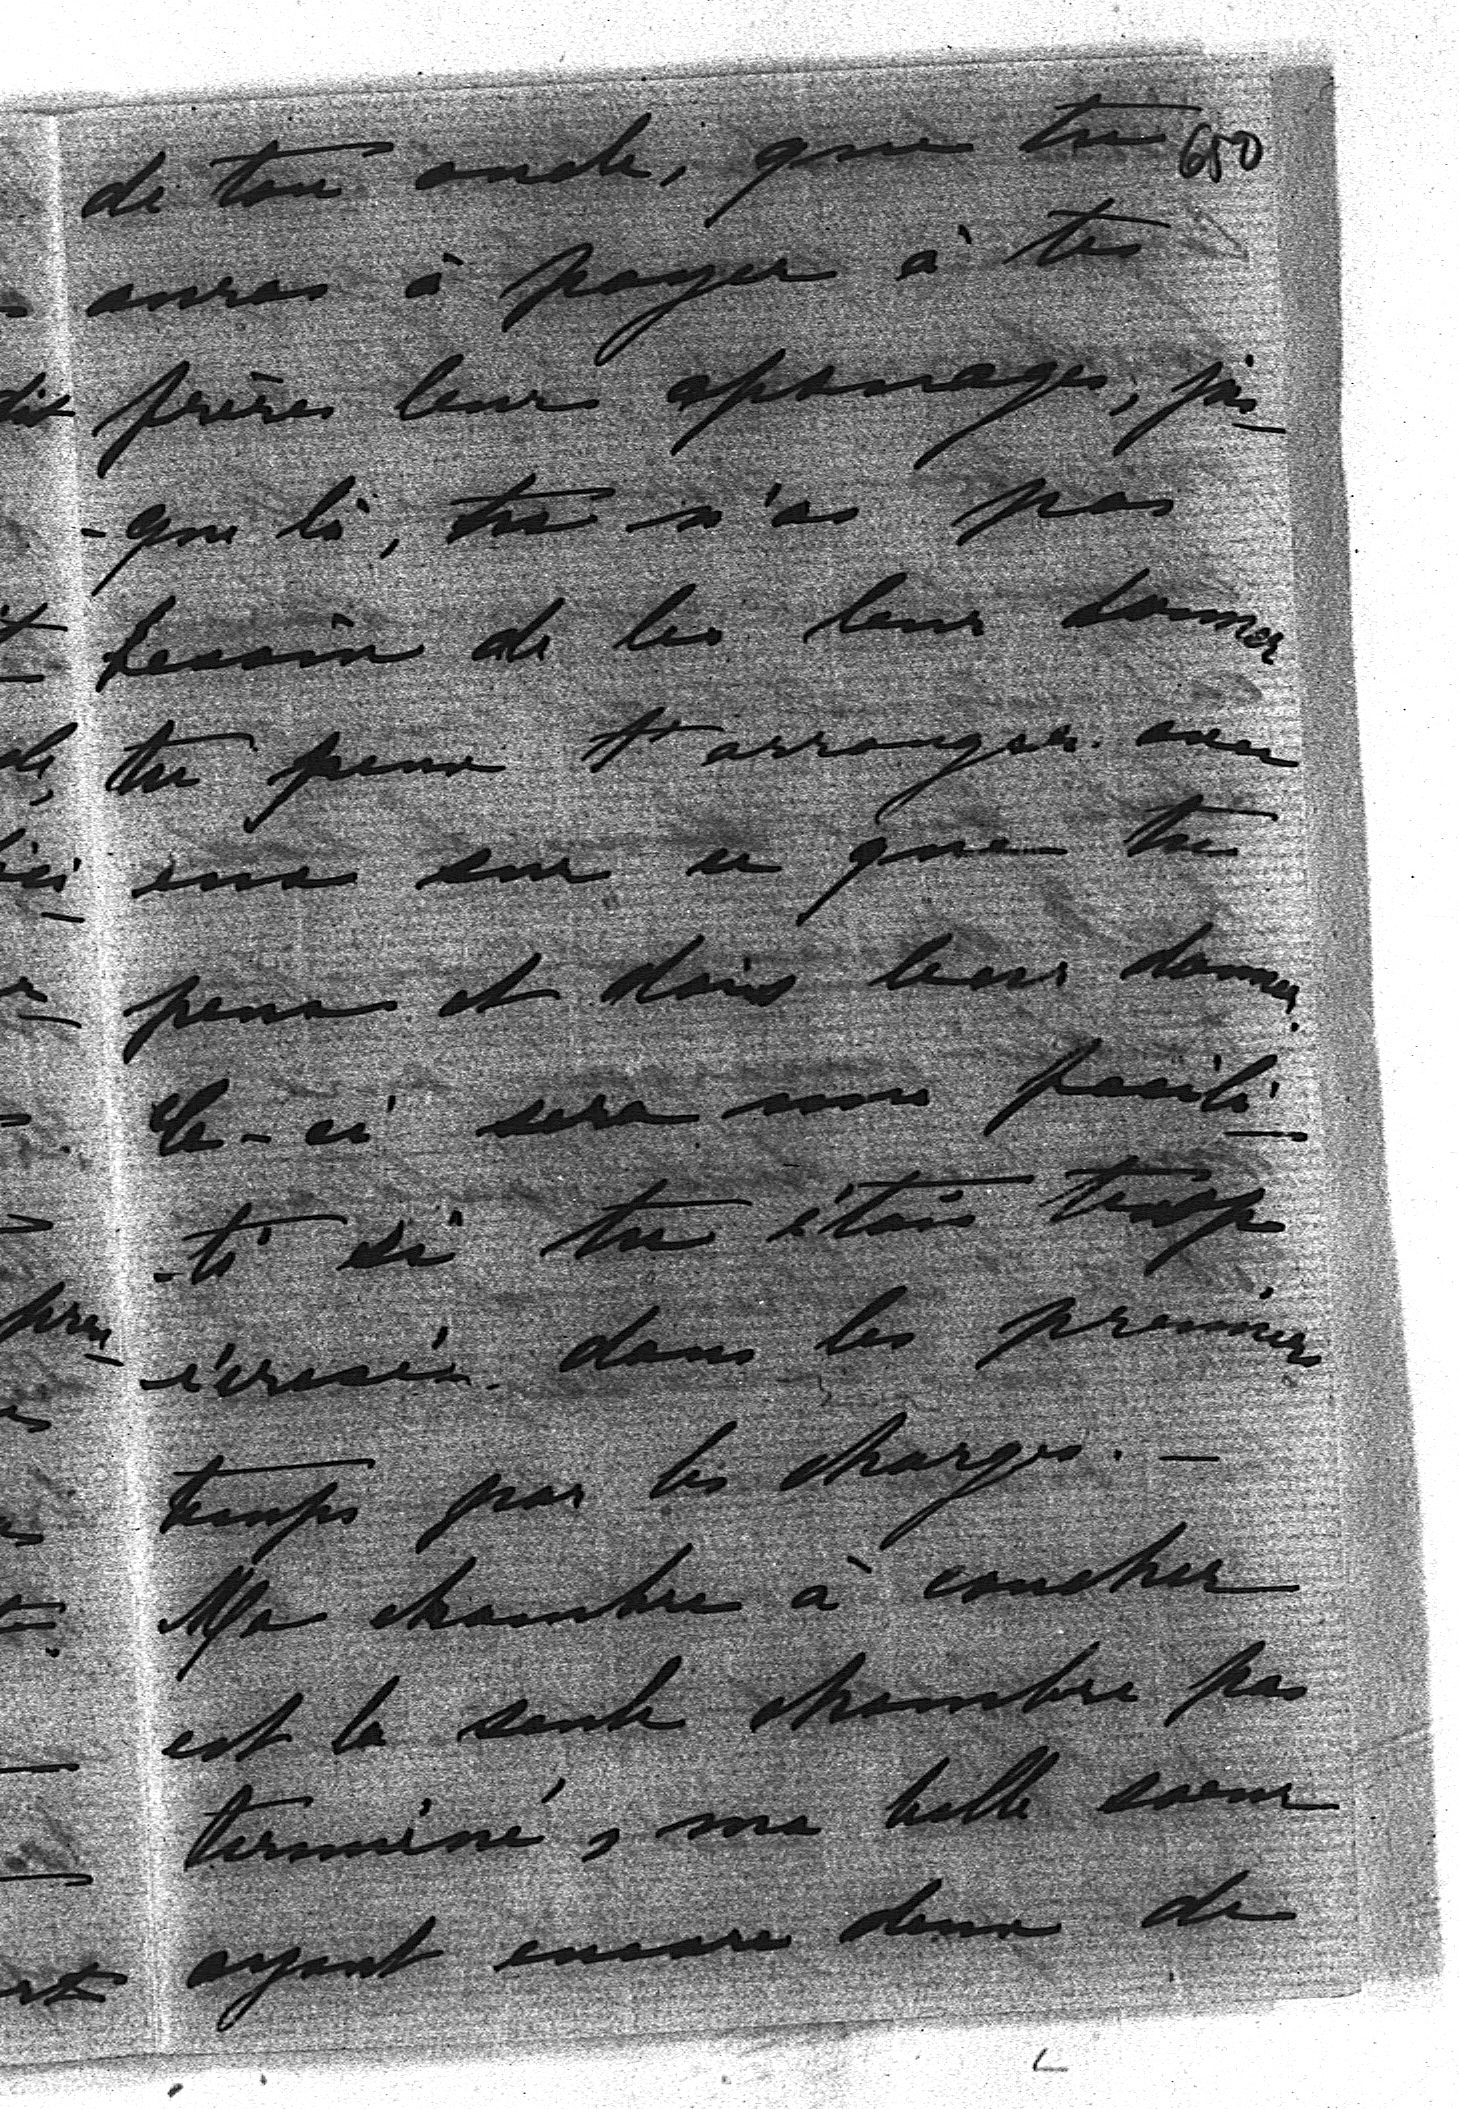 650
de ton oncle, que tu
auras à payer à tes
frères leurs apanages, jus-
-que là, tu n'as pas
besoin de les leur donner
tu peux t'arranger avec
eux sur ce que tu
peux et dois leur donner.
Ce-ci sera une facili-
-té si tu étais trop
écrasé dans les premiers
temps par les charges. —
Ma chambre à coucher
est la seule chambre pas
terminé, ma belle soeur
ayant encore deux de